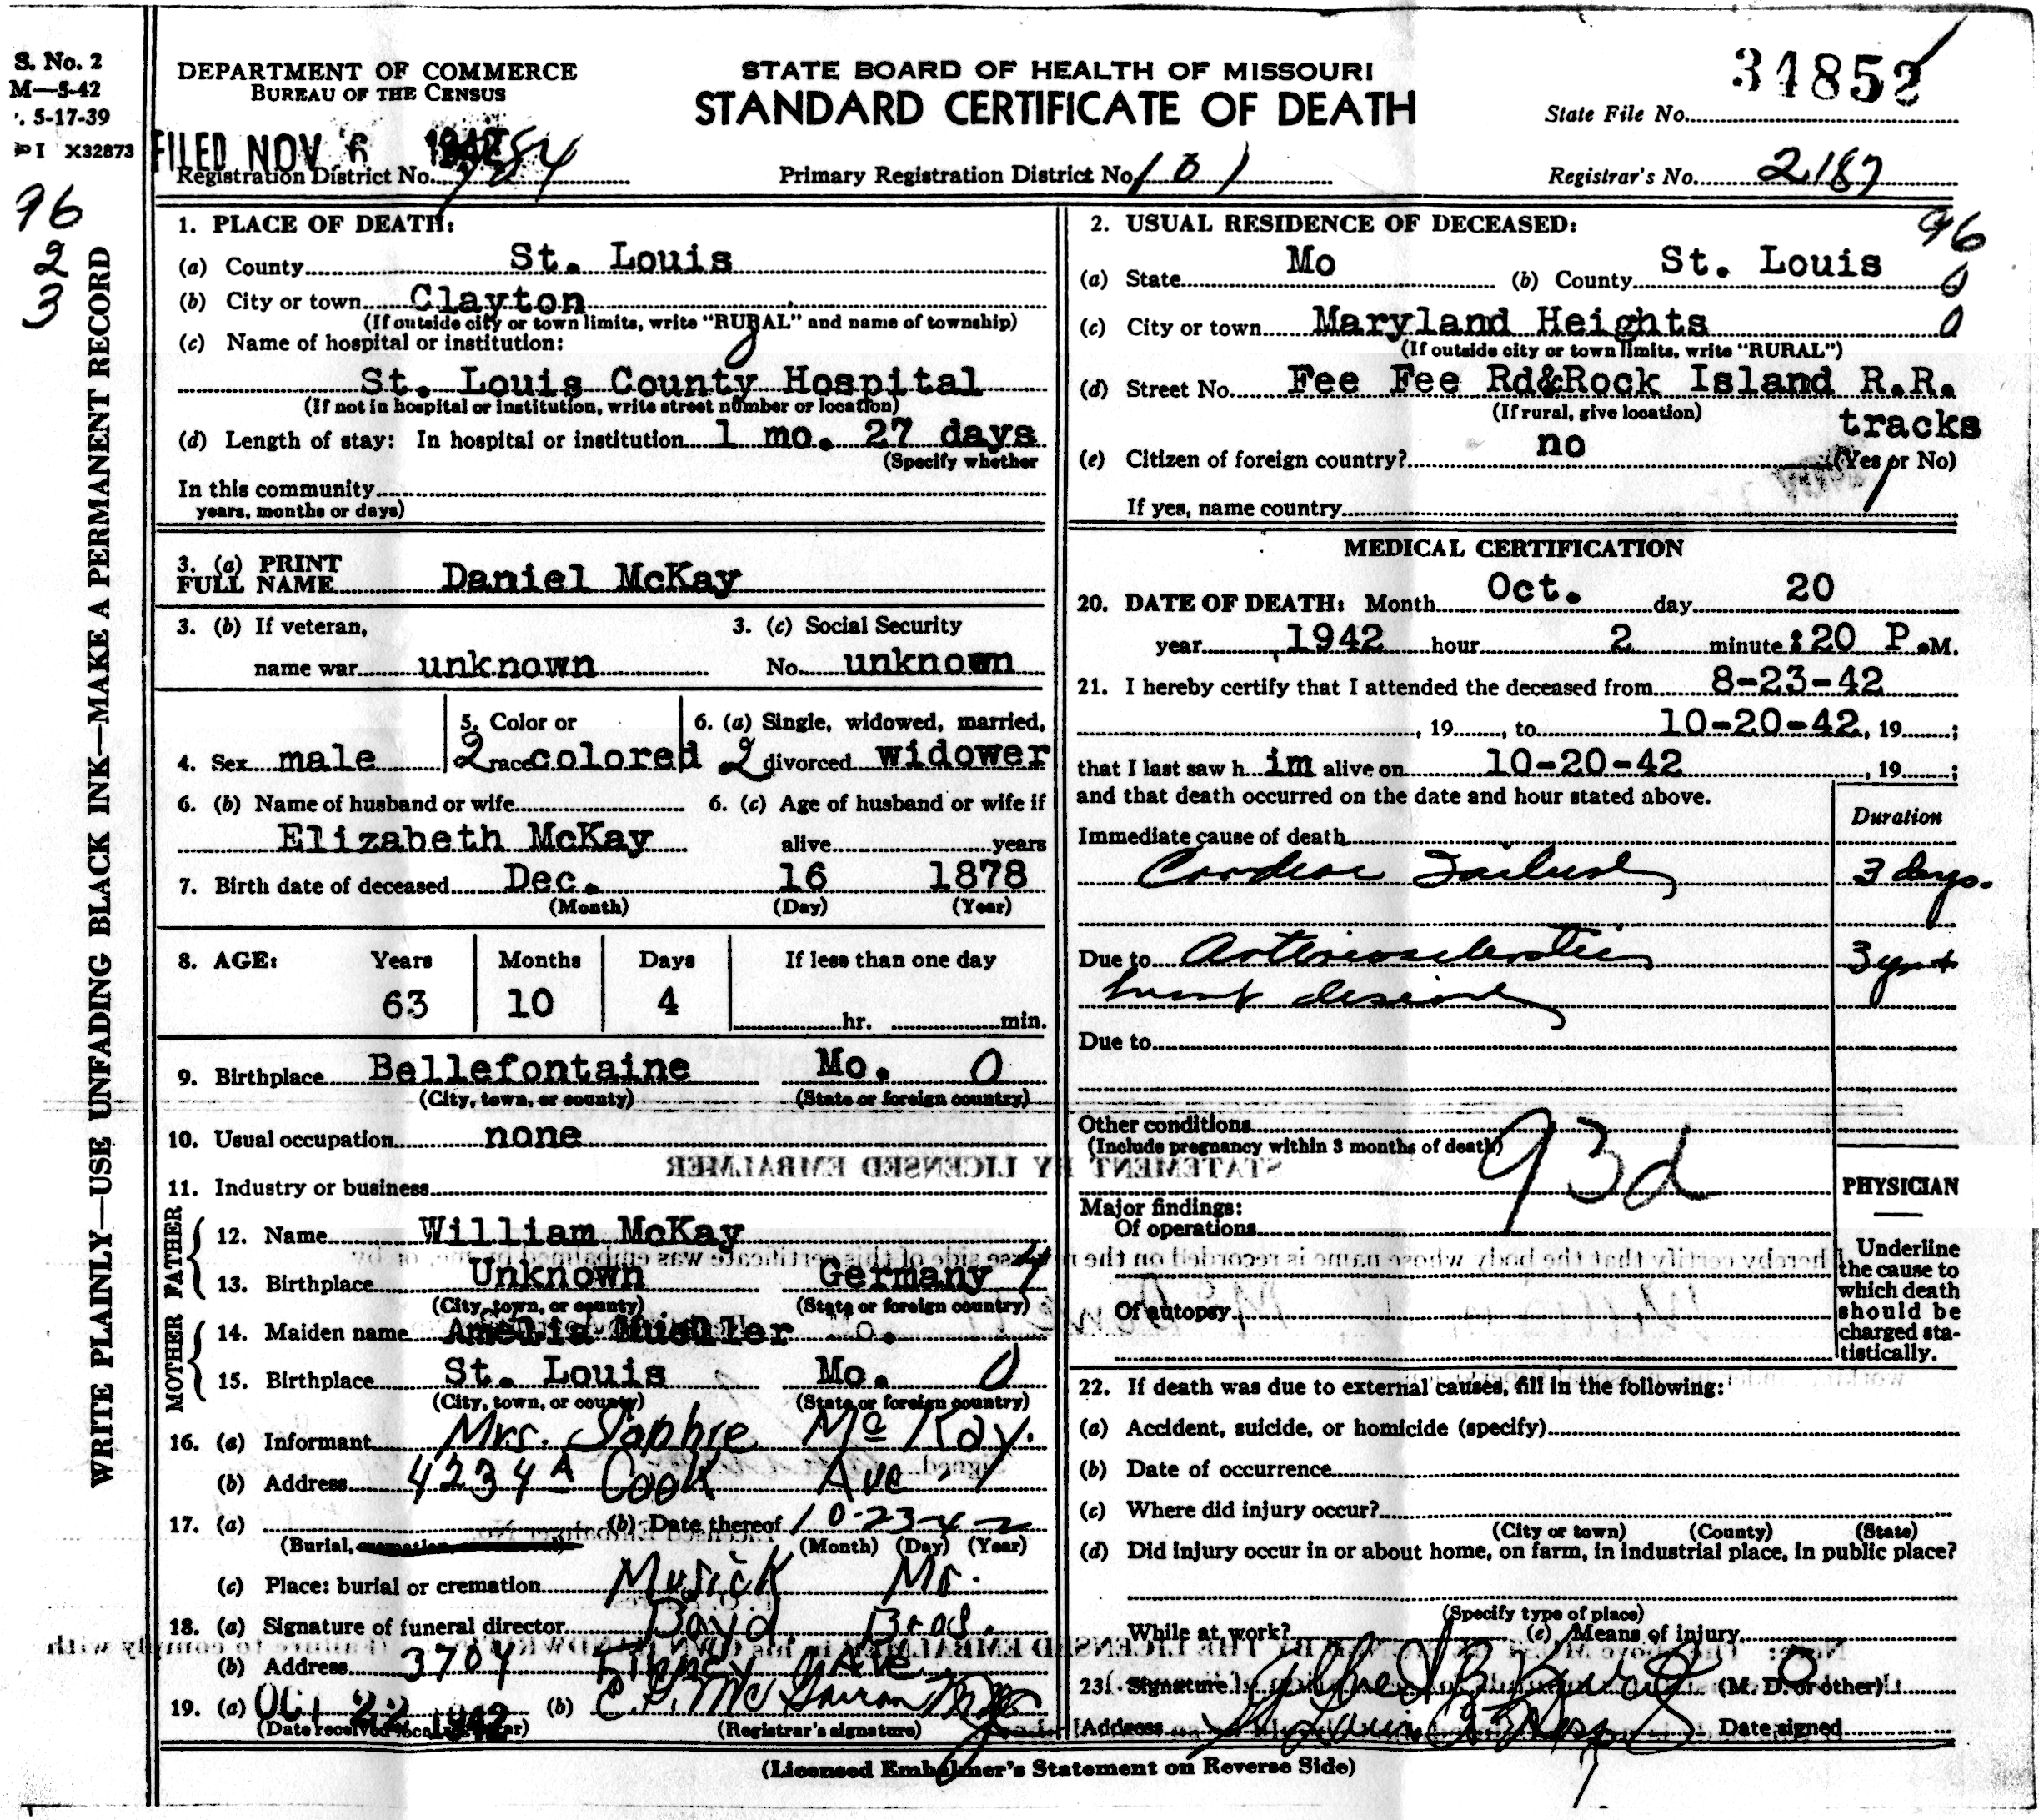 S. No. 2
M—5-42
5-17-39
I X32873
96
2
3
WRITE PLAINLY—USE UNFADING BLACK INK—MAKE A PERMANENT RECORD
DEPARTMENT OF COMMERCE
BUREAU OF THE CENSUS
FILED NOV 6 1942
Registration District No. 784
STATE BOARD OF HEALTH OF MISSOURI
STANDARD CERTIFICATE OF DEATH
Primary Registration District No. 101
34852
State File No.
Registrar's No. 2187
1. PLACE OF DEATH:
(a) County St. Louis
(b) City or town Clayton
(If outside city or town limits, write "RURAL" and name of township)
(c) Name of hospital or institution:
St. Louis County Hospital
(If not in hospital or institution, write street number or location)
(d) Length of stay: In hospital or institution 1 mo. 27 days
(Specify whether
In this community
years, months or days)
2. USUAL RESIDENCE OF DECEASED: 96
(a) State Mo (b) County St. Louis 0
(c) City or town Maryland Heights 0
(If outside city or town limits, write "RURAL")
(d) Street No. Fee Fee Rd&Rock Island R.R.
(If rural, give location) tracks
(e) Citizen of foreign country? no (Yes or No)
If yes, name country
3. (a) PRINT
FULL NAME Daniel McKay
3. (b) If veteran, 3. (c) Social Security
name war unknown No. unknown
5. Color or 6. (a) Single, widowed, married,
4. Sex male 2 race colored 2 divorced widower
6. (b) Name of husband or wife 6. (c) Age of husband or wife if
Elizabeth McKay alive years
7. Birth date of deceased Dec. 16 1878
(Month) (Day) (Year)
8. AGE: Years Months Days If less than one day
63 10 4 hr. min.
9. Birthplace Bellefontaine Mo. 0
(City, town, or county) (State or foreign country)
10. Usual occupation none
11. Industry or business
FATHER
12. Name William McKay
13. Birthplace Unknown Germany 4
(City, town, or county) (State or foreign country)
MOTHER
14. Maiden name Amelia Mueller
15. Birthplace St. Louis Mo. 0
(City, town, or county) (State or foreign country)
16. (a) Informant Mrs. Sophie McKay.
(b) Address 4234A Cook Ave
17. (a) (b) Date thereof 10-23-42
(Burial, cremation, or removal) (Month) (Day) (Year)
(c) Place: burial or cremation Musick Mo.
18. (a) Signature of funeral director Boyd Bros.
(b) Address 3704 Finney Ave
19. (a) OCT 22 1942 (b) E. G. McGavran M.D.
(Date received local registrar) (Registrar's signature)
MEDICAL CERTIFICATION
20. DATE OF DEATH: Month Oct. day 20
year 1942 hour 2 minute :20 P.M.
21. I hereby certify that I attended the deceased from 8-23-42
, 19 , to 10-20-42, 19 ;
that I last saw h im alive on 10-20-42 , 19 ;
and that death occurred on the date and hour stated above.
Duration
Immediate cause of death
Cardiac Failure 3 days.
Due to Arteriosclerotic 3 yr+
heart disease
Due to
Other conditions
(Include pregnancy within 3 months of death)
93d
Major findings:
Of operations
Of autopsy
PHYSICIAN
Underline
the cause to
which death
should be
charged sta-
tistically.
22. If death was due to external causes, fill in the following:
(a) Accident, suicide, or homicide (specify)
(b) Date of occurrence
(c) Where did injury occur?
(City or town) (County) (State)
(d) Did injury occur in or about home, on farm, in industrial place, in public place?
(Specify type of place)
While at work? (e) Means of injury
23. Signature (M. D. or other)
Address Date signed
(Licensed Embalmer's Statement on Reverse Side)